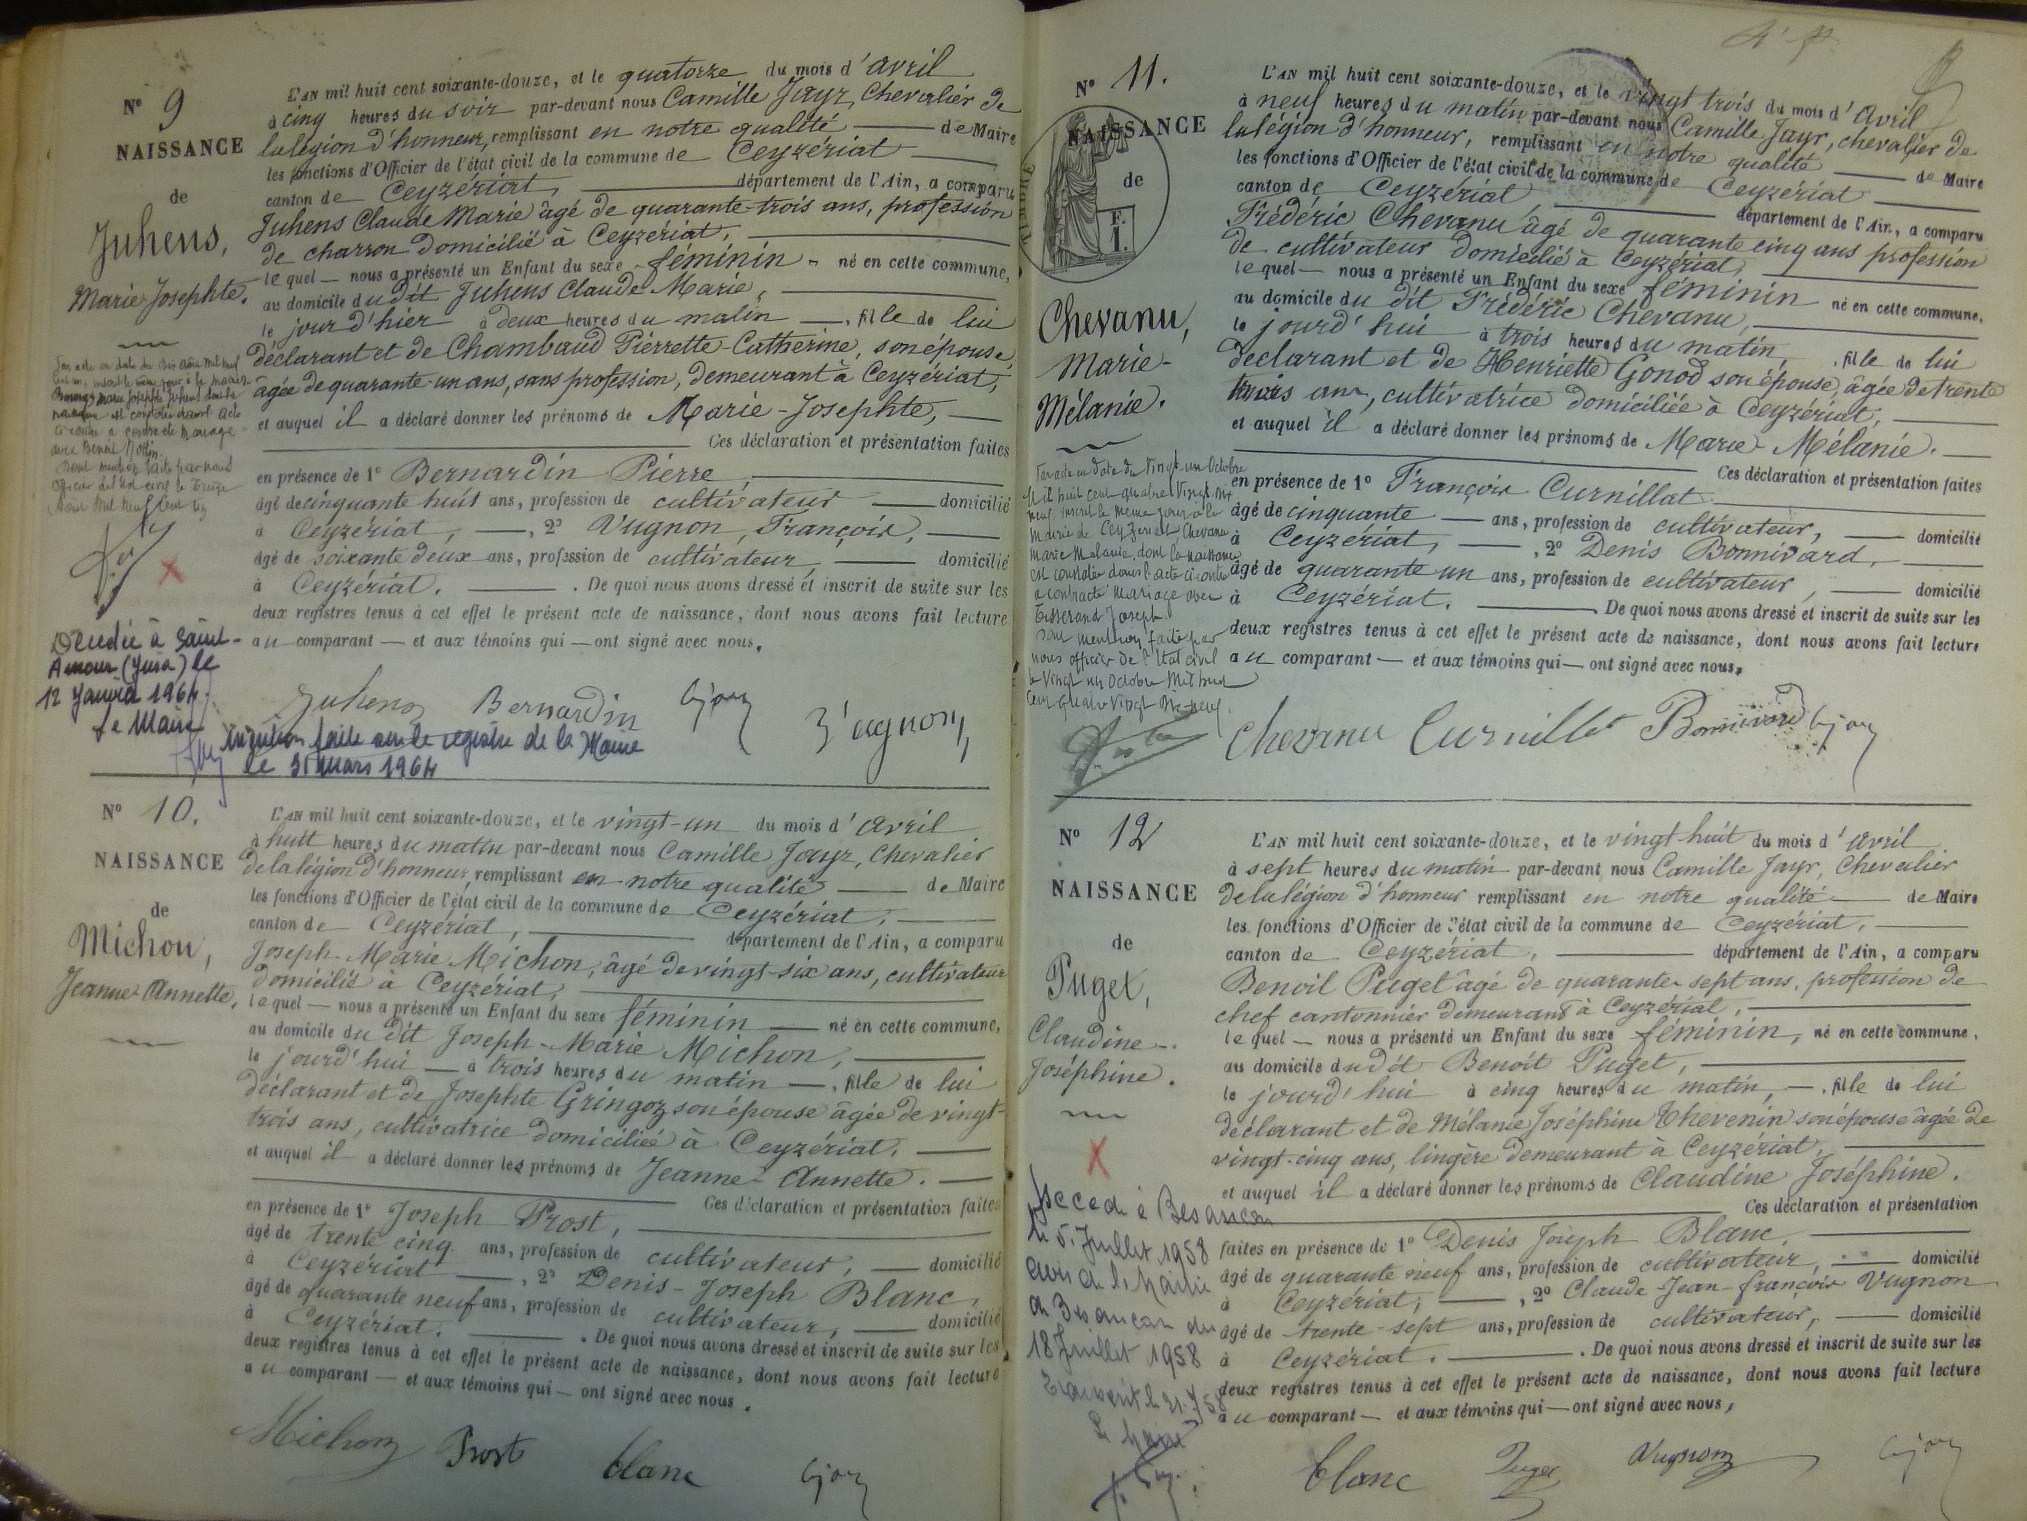 N° 9
NAISSANCE
de
Juhens,
Marie Josephte.
L'AN mil huit cent soixante-douze, et le quatorze du mois d'avril
à cinq heures du soir par-devant nous Camille Jayr, Chevalier de
la légion d'honneur, remplissant en notre qualité de Maire
les fonctions d'Officier de l'état civil de la commune de Ceyzériat
canton de Ceyzériat, département de l'Ain, a comparu
Juhens Claude Marie âgé de quarante-trois ans, profession
de charron domicilié à Ceyzériat,
le quel nous a présenté un Enfant du sexe féminin né en cette commune,
au domicile du dit Juhens Claude Marie,
le jour d'hier à deux heures du matin, fille de lui
déclarant et de Chambaud Pierrette-Catherine, son épouse,
âgée de quarante-un ans, sans profession, demeurant à Ceyzériat,
et auquel il a déclaré donner les prénoms de Marie-Josephte,
Ces déclaration et présentation faites
en présence de 1° Bernardin Pierre,
âgé de cinquante huit ans, profession de cultivateur domicilié
à Ceyzériat, 2° Vugnon, François,
âgé de soixante deux ans, profession de cultivateur, domicilié
à Ceyzériat. De quoi nous avons dressé et inscrit de suite sur les
deux registres tenus à cet effet le présent acte de naissance, dont nous avons fait lecture
au comparant et aux témoins qui ont signé avec nous.
avec Benoit
Dont mention faite par nous
officier de l'état civil le treize
Août mil neuf cent
Décédée à Saint-
Amour (Jura) le
12 Janvier 1964.
Le Maire
Juhens Bernardin Cjayr Vugnon
Mention faite sur le registre de la Mairie
le 31 Mars 1964
N° 10.
NAISSANCE
de
Michon,
Jeanne-Annette.
L'AN mil huit cent soixante-douze, et le vingt-un du mois d'avril
à huit heures du matin par-devant nous Camille Jayr, Chevalier
de la légion d'honneur, remplissant en notre qualité de Maire
les fonctions d'Officier de l'état civil de la commune de Ceyzériat,
canton de Ceyzériat, département de l'Ain, a comparu
Joseph-Marie Michon, âgé de vingt-six ans, cultivateur
domicilié à Ceyzériat,
le quel nous a présenté un Enfant du sexe féminin né en cette commune,
au domicile du dit Joseph-Marie Michon,
le jourd'hui à trois heures du matin, fille de lui
déclarant et de Josephte Gringoz son épouse âgée de vingt-
trois ans, cultivatrice domiciliée à Ceyzériat,
et auquel il a déclaré donner les prénoms de Jeanne-Annette.
Ces déclaration et présentation faites
en présence de 1° Joseph Prost,
âgé de trente cinq ans, profession de cultivateur, domicilié
à Ceyzériat, 2° Denis-Joseph Blanc,
âgé de quarante neuf ans, profession de cultivateur, domicilié
à Ceyzériat. De quoi nous avons dressé et inscrit de suite sur les
deux registres tenus à cet effet le présent acte de naissance, dont nous avons fait lecture
au comparant et aux témoins qui ont signé avec nous.
Michon Prost Blanc Cjayr
N° 11.
NAISSANCE
de
Chevanu,
Marie-
Mélanie.
TIMBRE
L'AN mil huit cent soixante-douze, et le vingt trois du mois d'avril
à neuf heures du matin par-devant nous Camille Jayr, chevalier de
la légion d'honneur, remplissant en notre qualité de Maire
les fonctions d'Officier de l'état civil de la commune de Ceyzériat
canton de Ceyzériat, département de l'Ain, a comparu
Frédéric Chevanu âgé de quarante cinq ans profession
de cultivateur domicilié à Ceyzériat,
le quel nous a présenté un Enfant du sexe féminin né en cette commune,
au domicile du dit Frédéric Chevanu,
le jourd'hui à trois heures du matin, fille de lui
déclarant et de Henriette Gonod son épouse, âgée de trente
trois ans, cultivatrice domiciliée à Ceyzériat,
et auquel il a déclaré donner les prénoms de Marie-Mélanie.
Ces déclaration et présentation faites
en présence de 1° François Curnillat
âgé de cinquante ans, profession de cultivateur, domicilié
à Ceyzériat, 2° Denis Bonnivard,
âgé de quarante un ans, profession de cultivateur, domicilié
à Ceyzériat. De quoi nous avons dressé et inscrit de suite sur les
deux registres tenus à cet effet le présent acte de naissance, dont nous avons fait lecture
au comparant et aux témoins qui ont signé avec nous.
Par acte en date du vingt un Octobre
Mil huit cent quatre vingt dix
neuf inscrit le même jour à la
Mairie de Ceyzériat, Chevanu
Marie Mélanie, dont la naissance
est constatée dans l'acte ci-contre
a contracté mariage avec
Tisserand Joseph.
Dont mention faite par
nous officier de l'état civil
le vingt un Octobre mil huit
cent quatre vingt dix-neuf.
Chevanu Curnillat Bonnivard Cjayr
N° 12
NAISSANCE
de
Puget,
Claudine-
Joséphine.
L'AN mil huit cent soixante-douze, et le vingt-huit du mois d'avril
à sept heures du matin par-devant nous Camille Jayr, Chevalier
de la légion d'honneur remplissant en notre qualité de Maire
les fonctions d'Officier de l'état civil de la commune de Ceyzériat,
canton de Ceyzériat, département de l'Ain, a comparu
Benoit Puget âgé de quarante-sept ans, profession de
chef cantonnier demeurant à Ceyzériat,
le quel nous a présenté un Enfant du sexe féminin, né en cette commune,
au domicile dudit Benoit Puget,
le jourd'hui à cinq heures du matin, fille de lui
déclarant et de Mélanie Joséphine Thevenin son épouse âgée de
vingt-cinq ans, lingère demeurant à Ceyzériat,
et auquel il a déclaré donner les prénoms de Claudine Joséphine.
Ces déclaration et présentation
faites en présence de 1° Denis Joseph Blanc,
âgé de quarante neuf ans, profession de cultivateur, domicilié
à Ceyzériat, 2° Claude Jean-François Vugnon
âgé de trente-sept ans, profession de cultivateur, domicilié
à Ceyzériat. De quoi nous avons dressé et inscrit de suite sur les
deux registres tenus à cet effet le présent acte de naissance, dont nous avons fait lecture
au comparant et aux témoins qui ont signé avec nous,
Décédé à Besançon
le 5 Juillet 1958
avis de la Mairie
de Besançon du
18 Juillet 1958
le 21.7.58
Le Maire
Blanc Puget Vugnon Cjayr